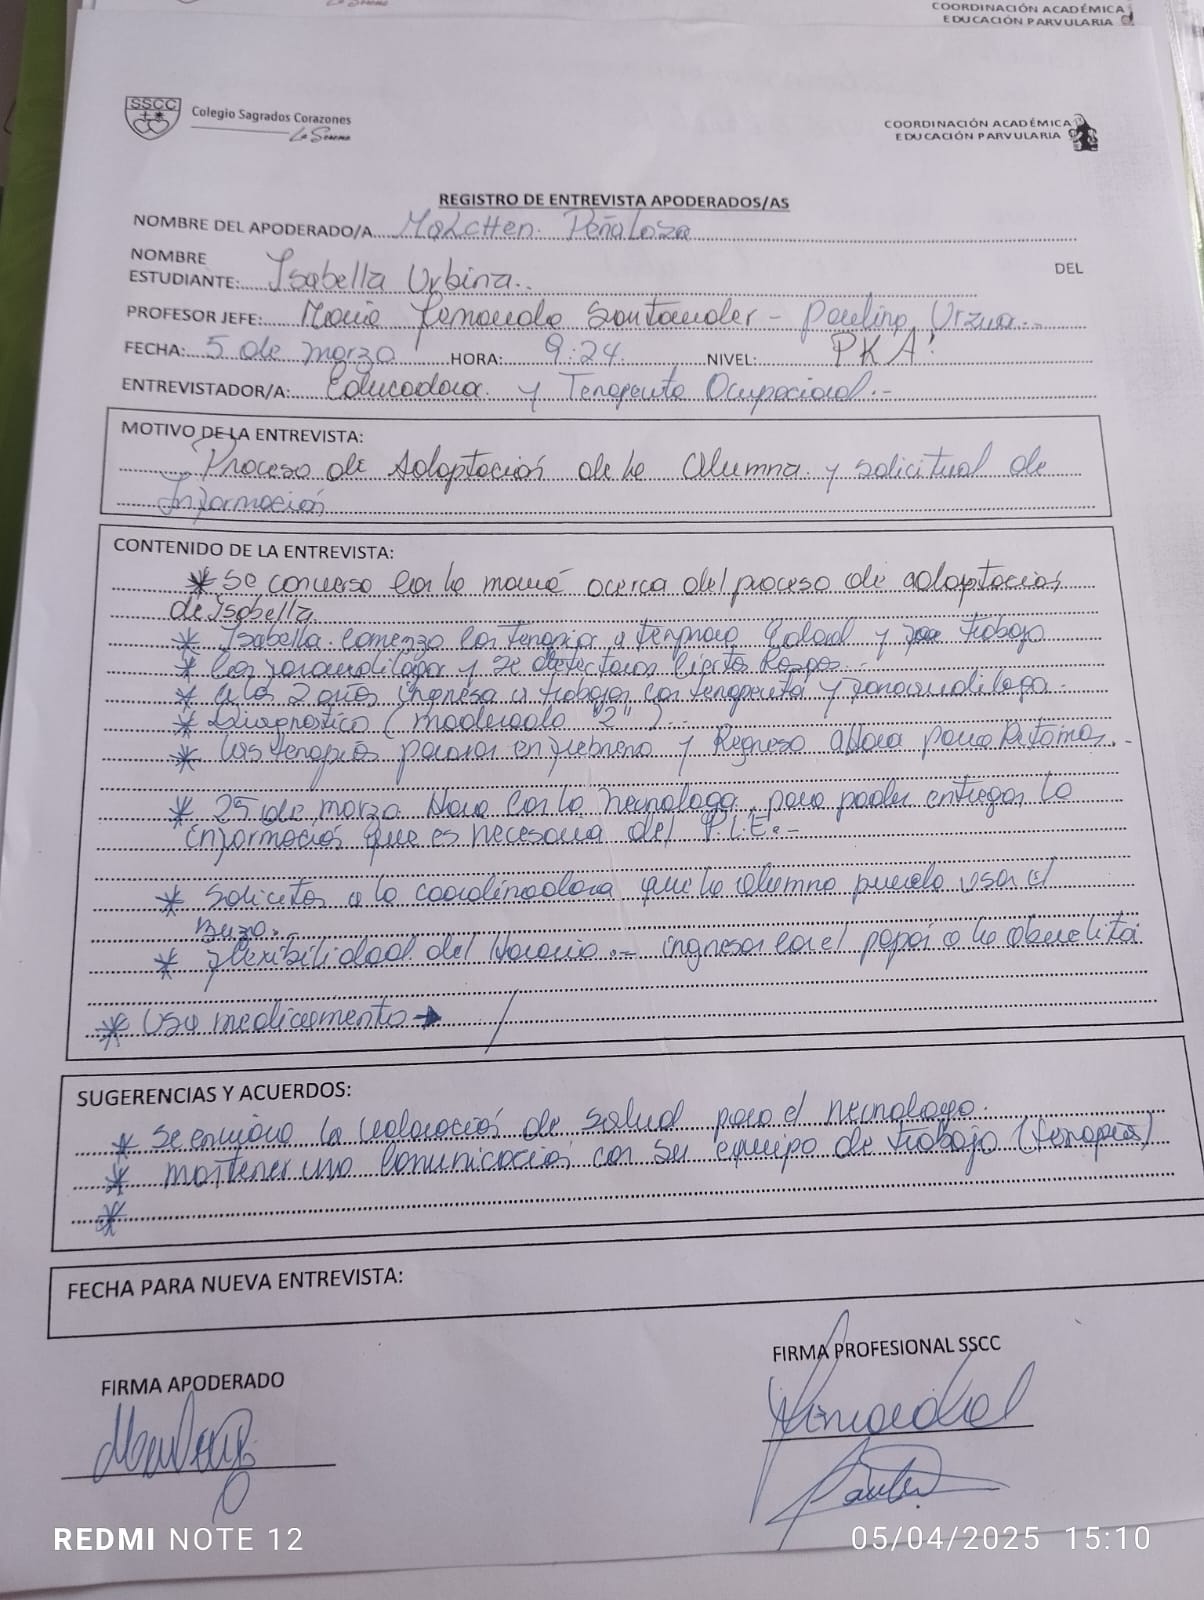 COORDINACIÓN ACADÉMICA
EDUCACIÓN PARVULARIA
SSCC
Colegio Sagrados Corazones
La Serena
COORDINACIÓN ACADÉMICA
EDUCACIÓN PARVULARIA
REGISTRO DE ENTREVISTA APODERADOS/AS
NOMBRE DEL APODERADO/A Malctten Peñaloza
NOMBRE DEL
ESTUDIANTE: Isabella Urbina
PROFESOR JEFE: María Fernanda Santander - Paulina Urzua
FECHA: 5 de marzo HORA: 9:24 NIVEL: PKA
ENTREVISTADOR/A: Educadora y Terapeuta Ocupacional.-
MOTIVO DE LA ENTREVISTA:
Proceso de Adaptación de la Alumna y solicitud de
Información
CONTENIDO DE LA ENTREVISTA:
* Se converso con la mamá acerca del proceso de adaptación
de Isabella.
* Isabella comenzo con terapia a temprana edad y trabajo
* con fonoaudiologa y se detectaron ciertos Rasgos.
* a los 2 años ingresa a trabajar con terapeuta y fonoaudiloga.-
* Diagnostico (moderado "2")
* Las terapias pararon en febrero y Regreso ahora para Retomar.-
* 25 de marzo Hora con la neurologa, para poder entregar la
información que es necesaria del P.I.E.-
* Solicitar a la coordinadora que la alumna pueda usar el
Buzo.
* flexibilidad del Horario.- ingresar con el papá o la abuelita
* Usa medicamento → /
SUGERENCIAS Y ACUERDOS:
* Se enviara la valoración de salud para el neurologo.
* mantener una comunicación con su equipo de trabajo (terapia)
*
FECHA PARA NUEVA ENTREVISTA:
FIRMA APODERADO
FIRMA PROFESIONAL SSCC
REDMI NOTE 12
05/04/2025 15:10